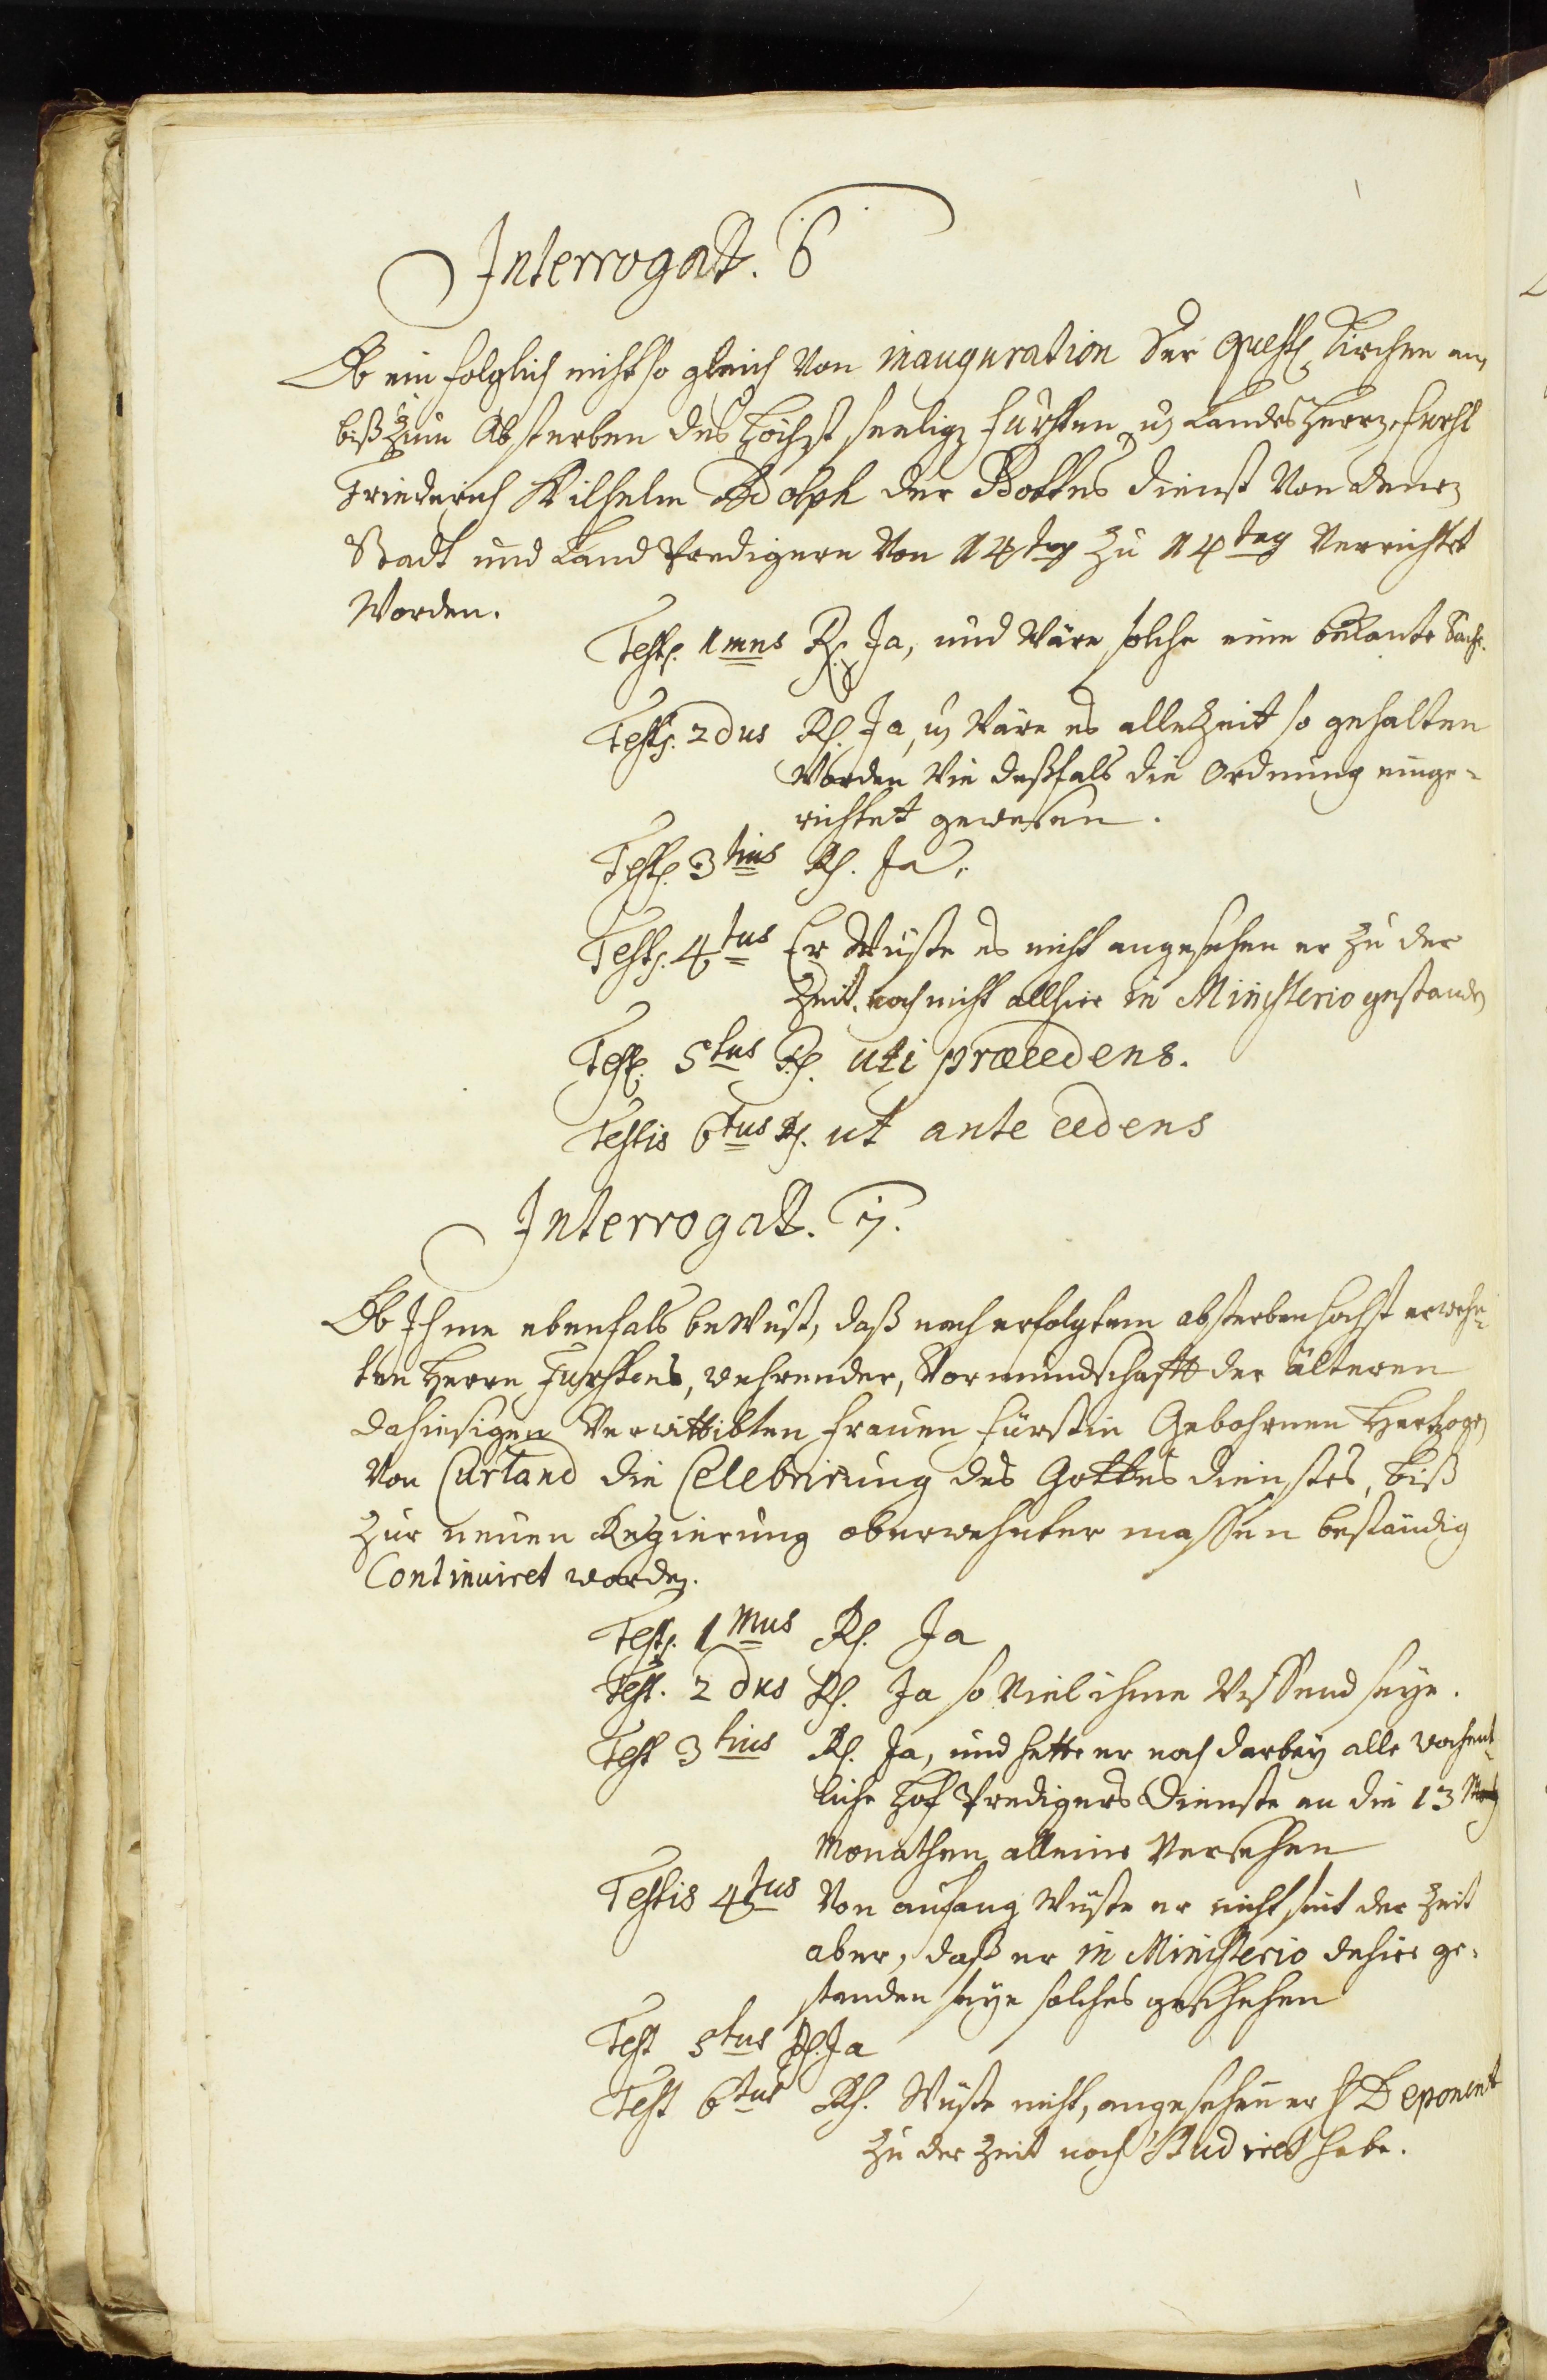 Interrogat. 6
Ob ein folglich nicht so gleich von inauguration der quest. Kirchen an,
biß zum Absterben des höchst seeligen Fürsten u. Landes Herrn, Fürst
Friederich Wilhelm Adolph der Gottes dienst von denen
Stadt und Land Predigern von 14 tag zu 14 tag verrichtet
worden.
Test. 1mus Rx. Ja, und wäre solche eine bekante Sache.
Test. 2dus Rs. Ja, u. wäre es allezeit so gehalten
worden wie deßfals die Ordnung einge-
richtet gewesen.
Test. 3tius Rs. Ja.
Test. 4tus Er wüste es nicht angesehen er zu der
Zeit noch nicht allhier in Ministerio gestanden
Test. 5tus Rs. uti præcedens.
Testis 6tus Rs. ut ante cedens
Interrogat. 7.
Ob Ihme ebenfals bewust, daß nach erfolgtem absterben höchst erwehn-
ten Herrn Fürstens, wehrender, Vormundschafft der älteren
dahiesigen verwittibten Frauen Fürstin Gebohrnen Hertzogin
von Curland die Celebrirung des Gottes dienstes, biß
zur neuen Regierung oberwehnter massen beständig
Continuiret worden.
Test. 1mus Rs. Ja
Test. 2dus Rs. Ja so viel ihme wissend seye.
Test 3tius Rs. Ja, und hette er noch darbey alle wochent-
liche Hof Predigers Dienste an die 13
Monathen alleine versehen
Testis 4tus Von anfang wüste er nicht seit der Zeit
aber, daß er in Ministerio dahier ge-
standen seye solches geschehen
Test 5tus Rs. Ja
Test 6tus Rs. Wüste nicht, angesehen er H. Deponent
zu der Zeit noch Studiret habe.